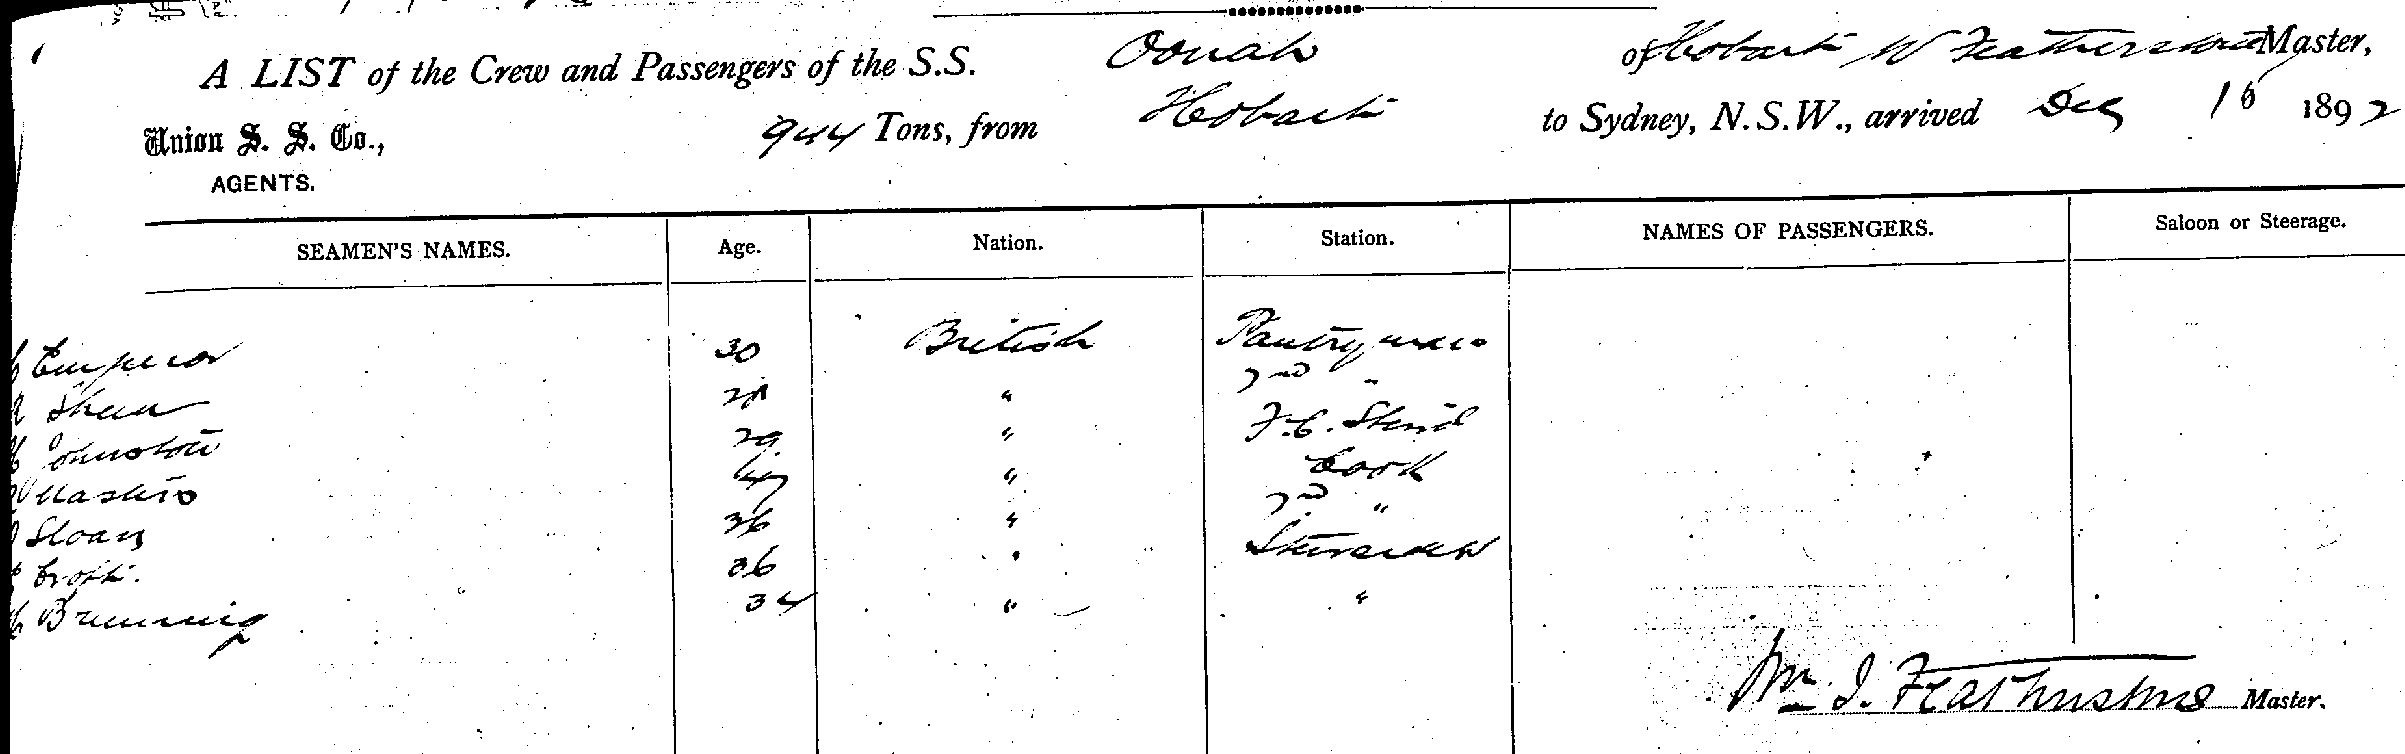 A LIST of the Crew and Passengers of the S.S. Oonah of Hobart W Featherstone Master,
Union S. S. Co., 944 Tons, from Hobart to Sydney, N.S.W., arrived Dec 16 1892
AGENTS.
SEAMEN'S NAMES. Age. Nation. Station. NAMES OF PASSENGERS. Saloon or Steerage.
Emperor 30 British Pantryman
Shea " 2nd "
Johnston 29 " F.C. Stew'd
47 " Cook
Sloan 36 " 2nd "
Croft. 26 " Stewardess
Brunning 34 " "
Wm J. Featherstone Master.